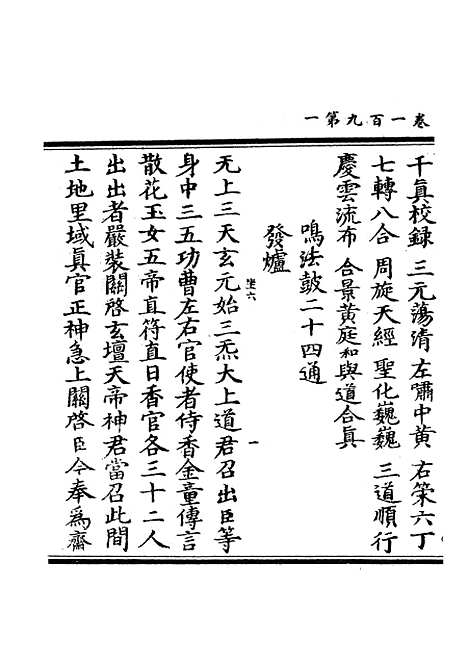 一第九百一卷
千真校録 三元蕩清 左嘯中黄 右策六丁
七轉八合 周旋天經 聖化巍巍 三道順行
慶雲流布 合景黄庭 和與道合真
鳴法鼓二十四通
發爐
无上三天玄元始三炁大上道君召出臣等
身中三五功曹左右官使者侍香金童傳言
散花玉女五帝直符直日香官各三十二人
出出者嚴裝關啓玄壇天帝神君當召此間
土地里域真官正神急上關啓臣今奉爲齋
坐六
一